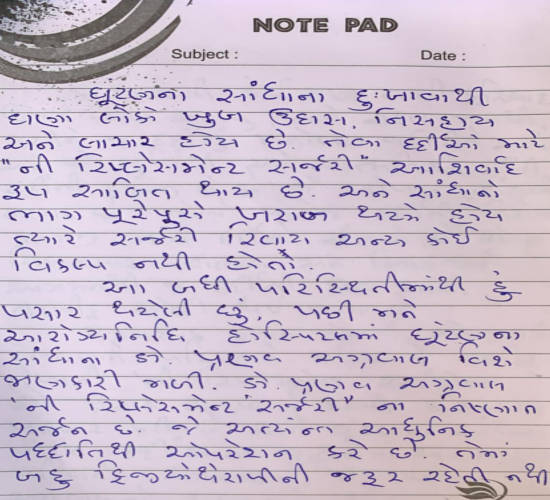 NOTE PAD
Subject :
Date :
ઘૂંટણના સાંધાના દુઃખાવાથી
ઘણા લોકો ખુબ ઉદાસ, નિસહાય
અને લાચાર હોય છે. તેવા દર્દીઓ માટે
"ની રિપ્લેસમેન્ટ સર્જરી" આશિર્વાદ
રૂપ સાબિત થાય છે. અને સાંધાનો
ભાગ પૂરેપુરો ખરાબ થયો હોય
ત્યારે સર્જરી સિવાય અન્ય કોઈ
વિકલ્પ નથી હોતો.
આ બધી પરિસ્થિતીમાંથી હું
પસાર થયેલી છું, પછી મને
આરોગ્યનિધિ હોસ્પિટલમાં ઘૂંટણના
સાંધાના ડો. પ્રણવ અગ્રવાલ વિશે
જાણકારી મળી. ડો. પ્રણવ અગ્રવાલ
'ની રિપ્લેસમેન્ટ સર્જરી" ના નિષ્ણાત
સર્જન છે. જે અત્યંત આધુનિક
પધ્ધતિથી ઓપરેશન કરે છે. તેમાં
બહુ ફિજીયોથેરાપીની જરૂર રહેતી નથી